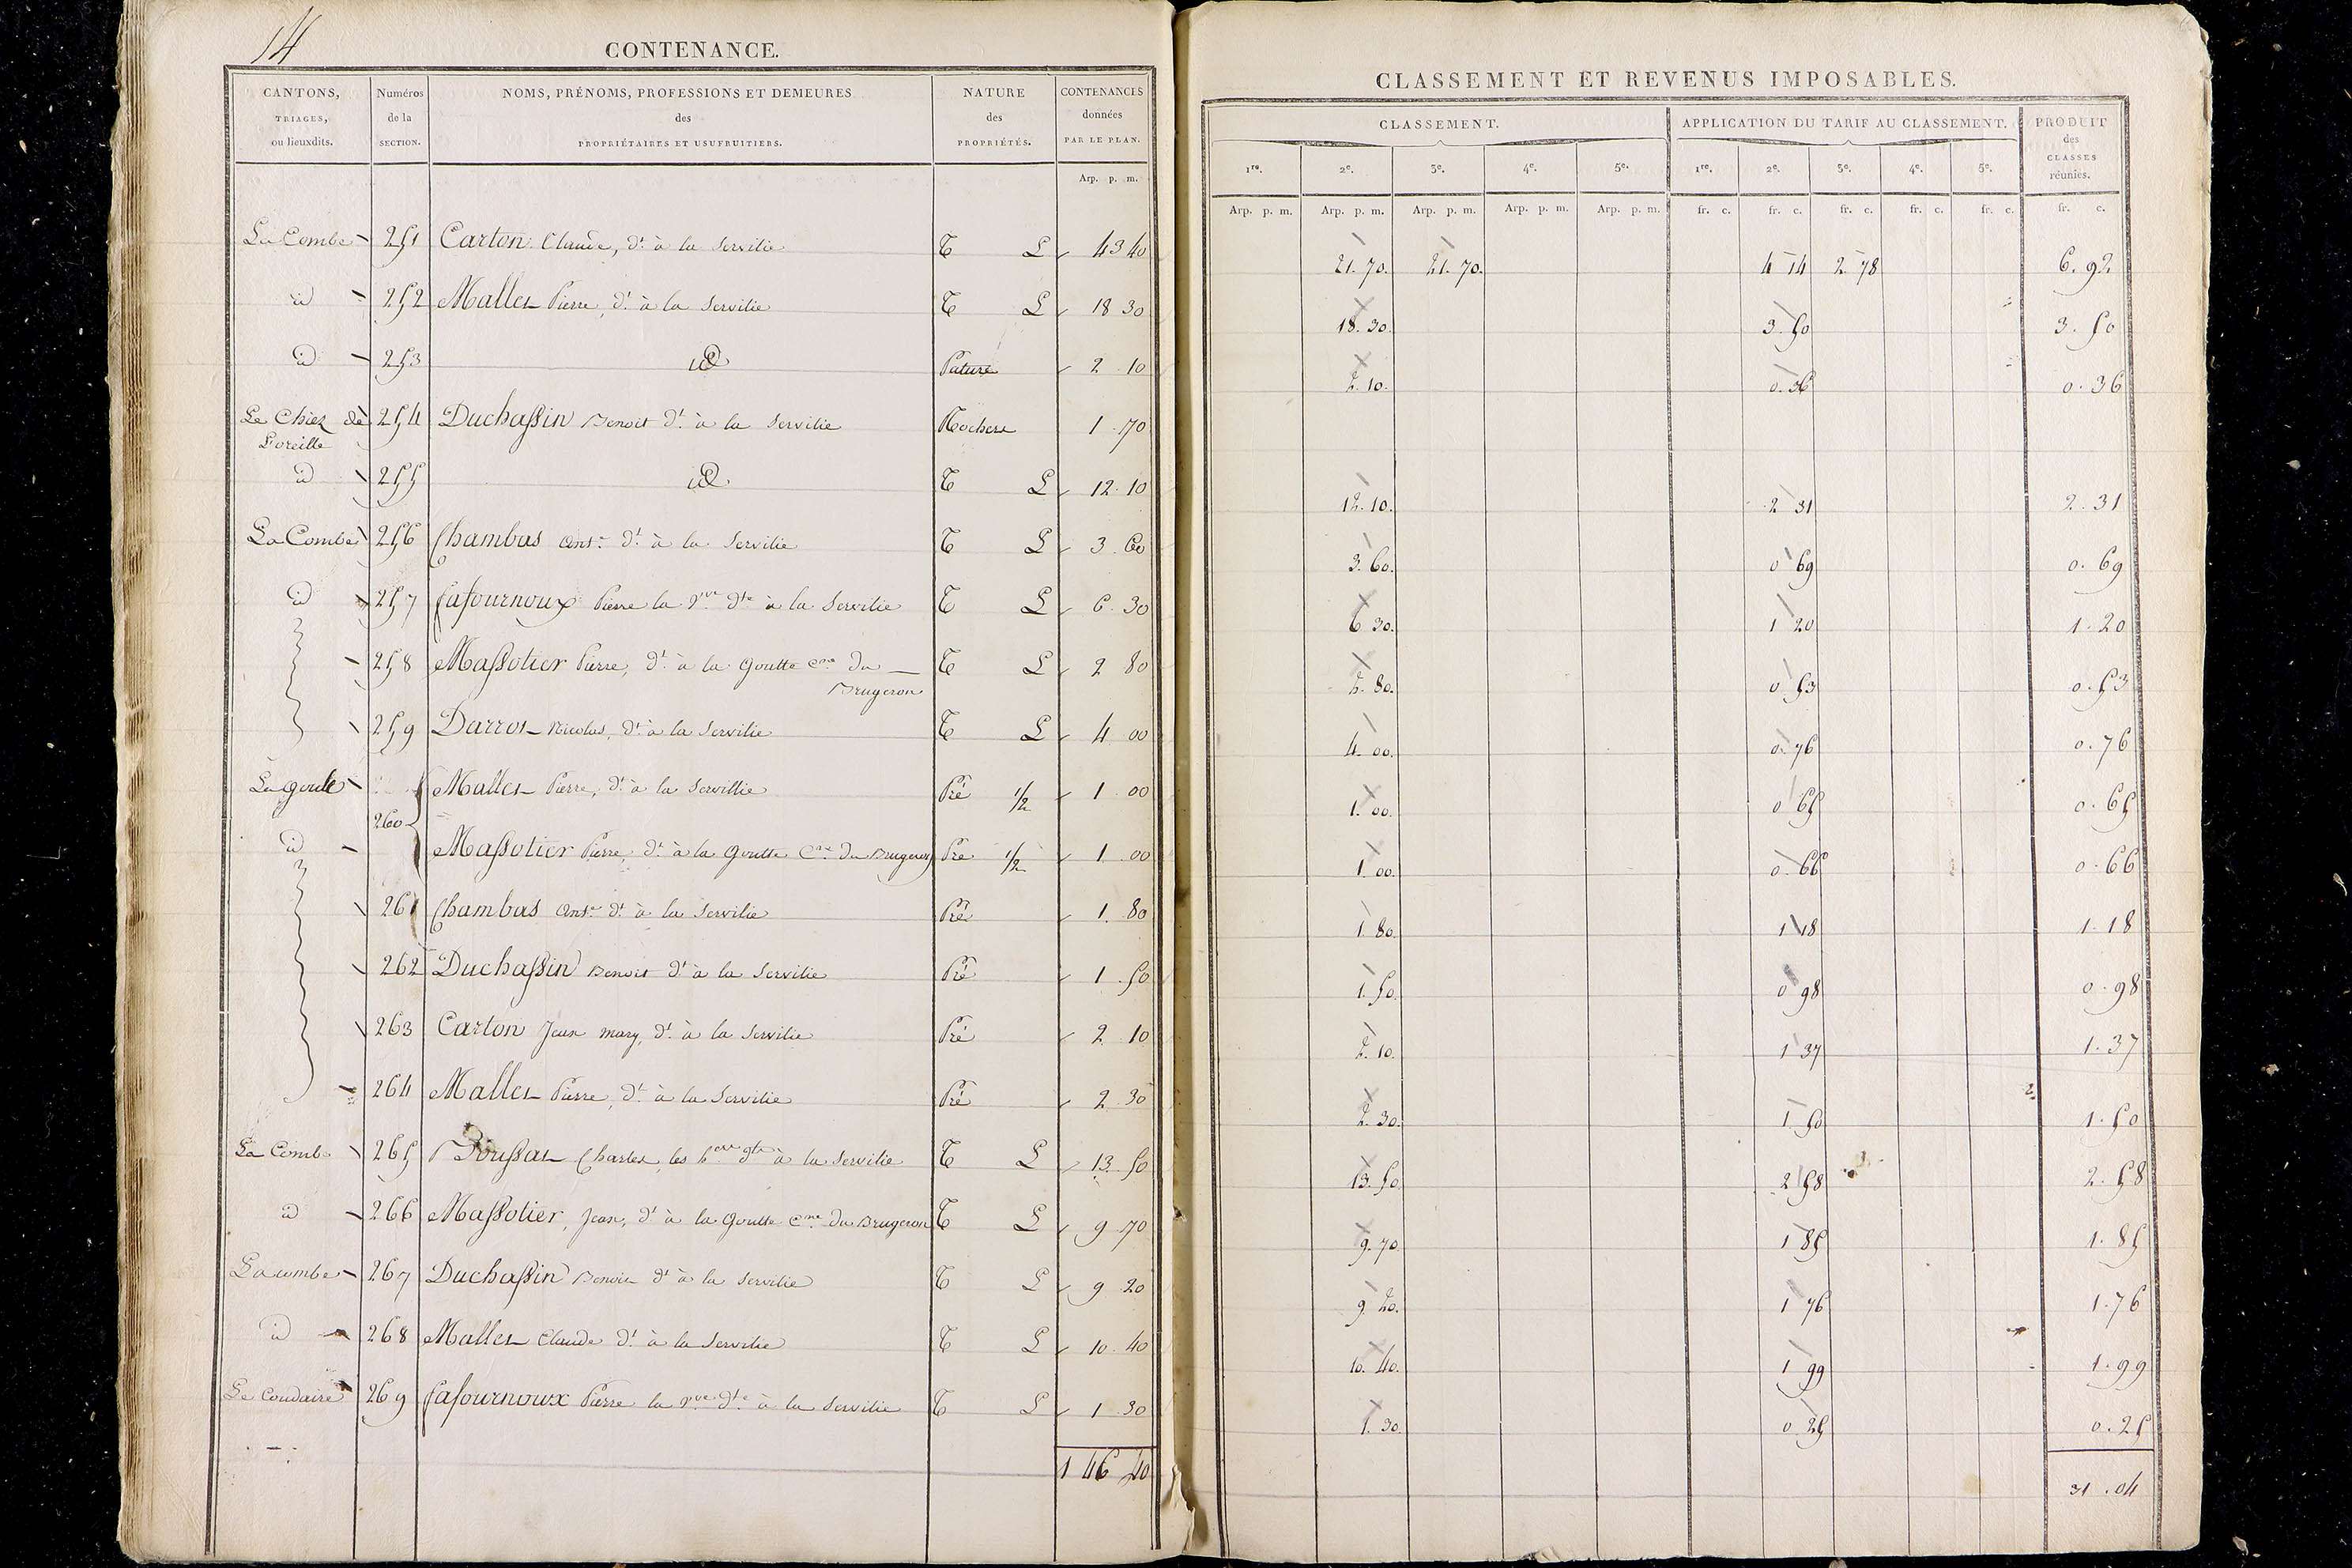 14
CONTENANCE.
CANTONS, TRIAGES, ou lieuxdits.
Numéros de la SECTION.
NOMS, PRÉNOMS, PROFESSIONS ET DEMEURES des PROPRIÉTAIRES ET USUFRUITIERS.
NATURE des PROPRIÉTÉS.
CONTENANCES données PAR LE PLAN.
Arp. p. m.
La Combe 251 Carton Claude, dt. à la Servilie T L 43 40
id 252 Malles Pierre, dt. à la Servilie T L 18 30
id 253 id Pature 2 10
Le Chiez de 254 Duchassin Benoit dt. à la Servilie Rochers 1 70
L'oreille
id 255 id T L 12 10
La Combe 256 Chambas Ant.e dt. à la Servilie T L 3 60
id 257 Lafournoux Pierre la Vve dte à la Servilie T L 6 30
258 Massotier Pierre, dt. à la Goutte Cne du T L 2 80
Brugeron
259 Darrot Nicolas, dt. à la Servilie T L 4 00
La goute Malles Pierre, dt. à la Servillie Pré 1/2 1 00
260
id Massotier Pierre, dt. à la Goutte Cne du Brugeron Pré 1/2 1 00
261 Chambas Ant.e dt. à la Servilie Pré 1 80
262 Duchassin Benoit dt à la Servilie Pré 1 50
263 Carton Jean Mary, dt. à la Servilie Pré 2 10
264 Malles Pierre, dt. à la Servilie Pré 2 30
La Combe 265 Charles, les à la Servilie T L 13 50
id 266 Massotier, Jean, dt à la Goutte Cne du Brugeron T L 9 70
La combe 267 Duchassin Benoit dt à la Servilie T L 9 20
id 268 Malles Claude dt. à la Servilie T L 10 40
Le Coudaire 269 Lafournoux Pierre la Vve dte à la Servilie T L 1 30
1 46 40
CLASSEMENT ET REVENUS IMPOSABLES.
CLASSEMENT.
APPLICATION DU TARIF AU CLASSEMENT.
PRODUIT des CLASSES réunies.
1re. 2e. 3e. 4e. 5e. 1re. 2e. 3e. 4e. 5e.
Arp. p. m. Arp. p. m. Arp. p. m. Arp. p. m. Arp. p. m. fr. c. fr. c. fr. c. fr. c. fr. c. fr. c.
21. 70. 21. 70. 4 14 2. 78 6. 92
18. 30. 3. 50 3. 50
2. 10. 0. 36 0. 36
12. 10. 2 31 2. 31
3. 60. 0 69 0. 69
6 30. 1 20 1. 20
2. 80. 0 53 0. 53
4. 00. 0. 76 0. 76
1. 00. 0 65 0. 65
1. 00. 0. 66 0. 66
1 80. 1 18 1. 18
1. 50. 0 98 0. 98
2. 10. 1 37 1. 37
2. 30. 1 50 1. 50
13. 50. 2 58 2. 58
9. 70. 1 85 1. 85
9. 20. 1 76 1. 76
10. 40. 1 99 1. 99
1. 30. 0 25 0. 25
31. 04